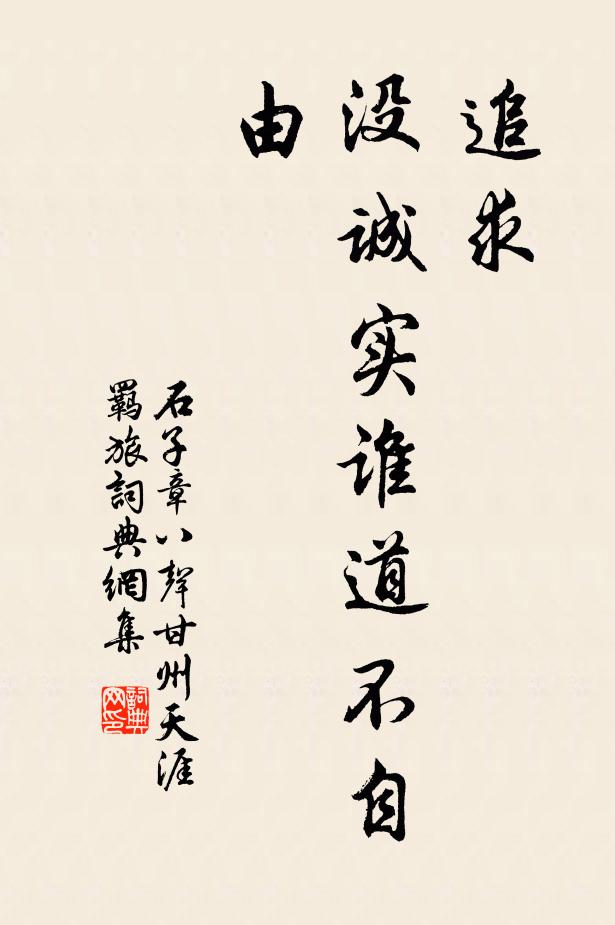 追求
没诚实谁道不自
由
石子章八聲甘州天涯
羁旅詞典網集
詞典网印